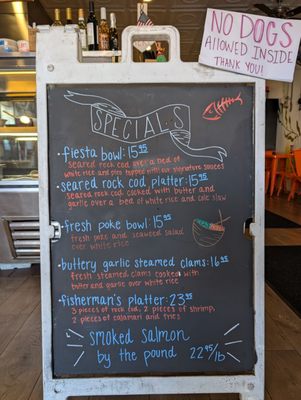 NO DOGS
ALLOWED INSIDE
THANK YOU!
SPECIALS
• fiesta bowl: 15⁹⁵
Seared rock cod over a bed of
white rice and pico topped with our signature sauces
• seared rock cod platter: 15⁹⁵
Seared rock cod cooked with butter and
garlic over a bed of white rice and cole slaw
• fresh poke bowl: 15⁹⁵
fresh poke and seaweed salad
over white rice
• buttery garlic steamed clams: 16⁹⁵
fresh steamed clams cooked with
butter and garlic over white rice
• fisherman's platter: 23⁹⁵
3 pieces of rock cod, 2 pieces of shrimp,
2 pieces of calamari and fries
smoked salmon
by the pound 22⁹⁵/lb